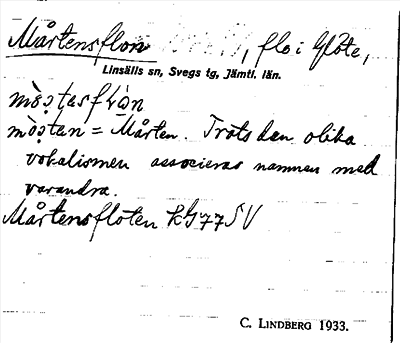 Mårtensflon, flo i Glöte,
Linsälls sn, Svegs tg, Jämtl. län.
mɔ̀ʂtasflɔ̀n
mɔ̀ʂtan = Mårten. Trots den olika
vokalismen associeras namnen med
varandra.
Mårtensfloten kG77SV
C. LINDBERG 1933.